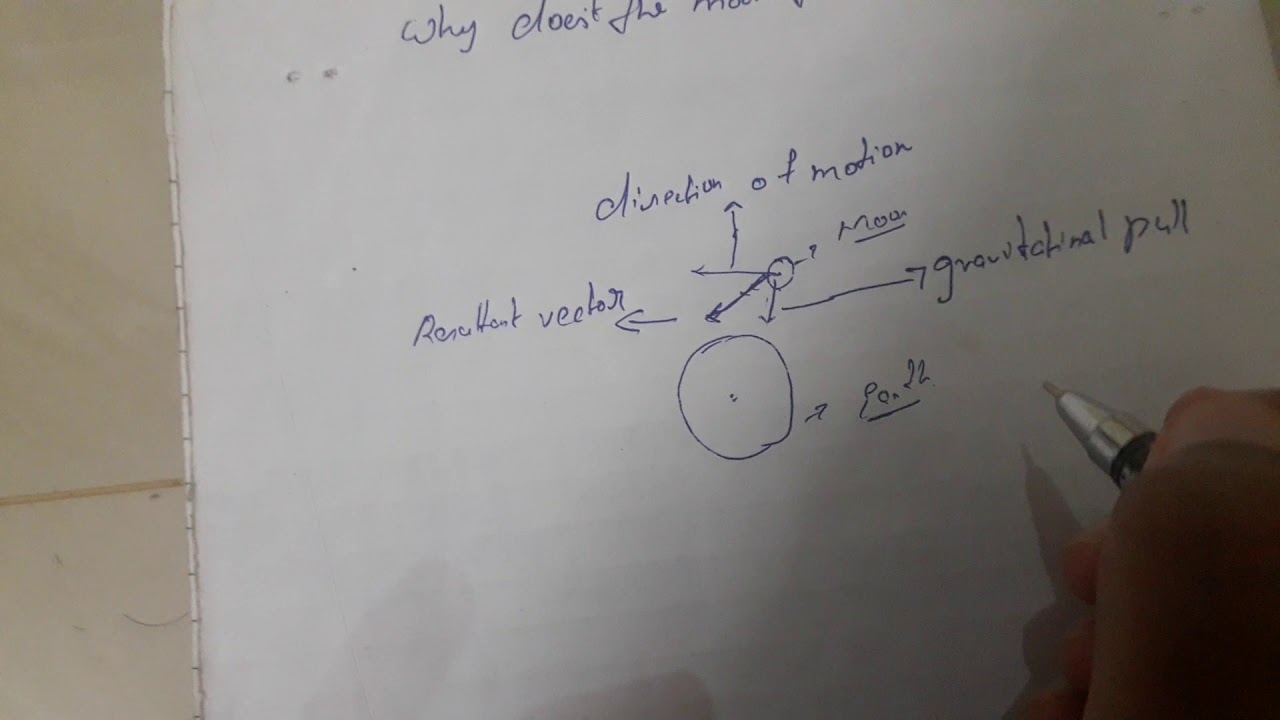 Why does't the
direction of motion
Moon
gravitational pull
Resultant vector
Earth